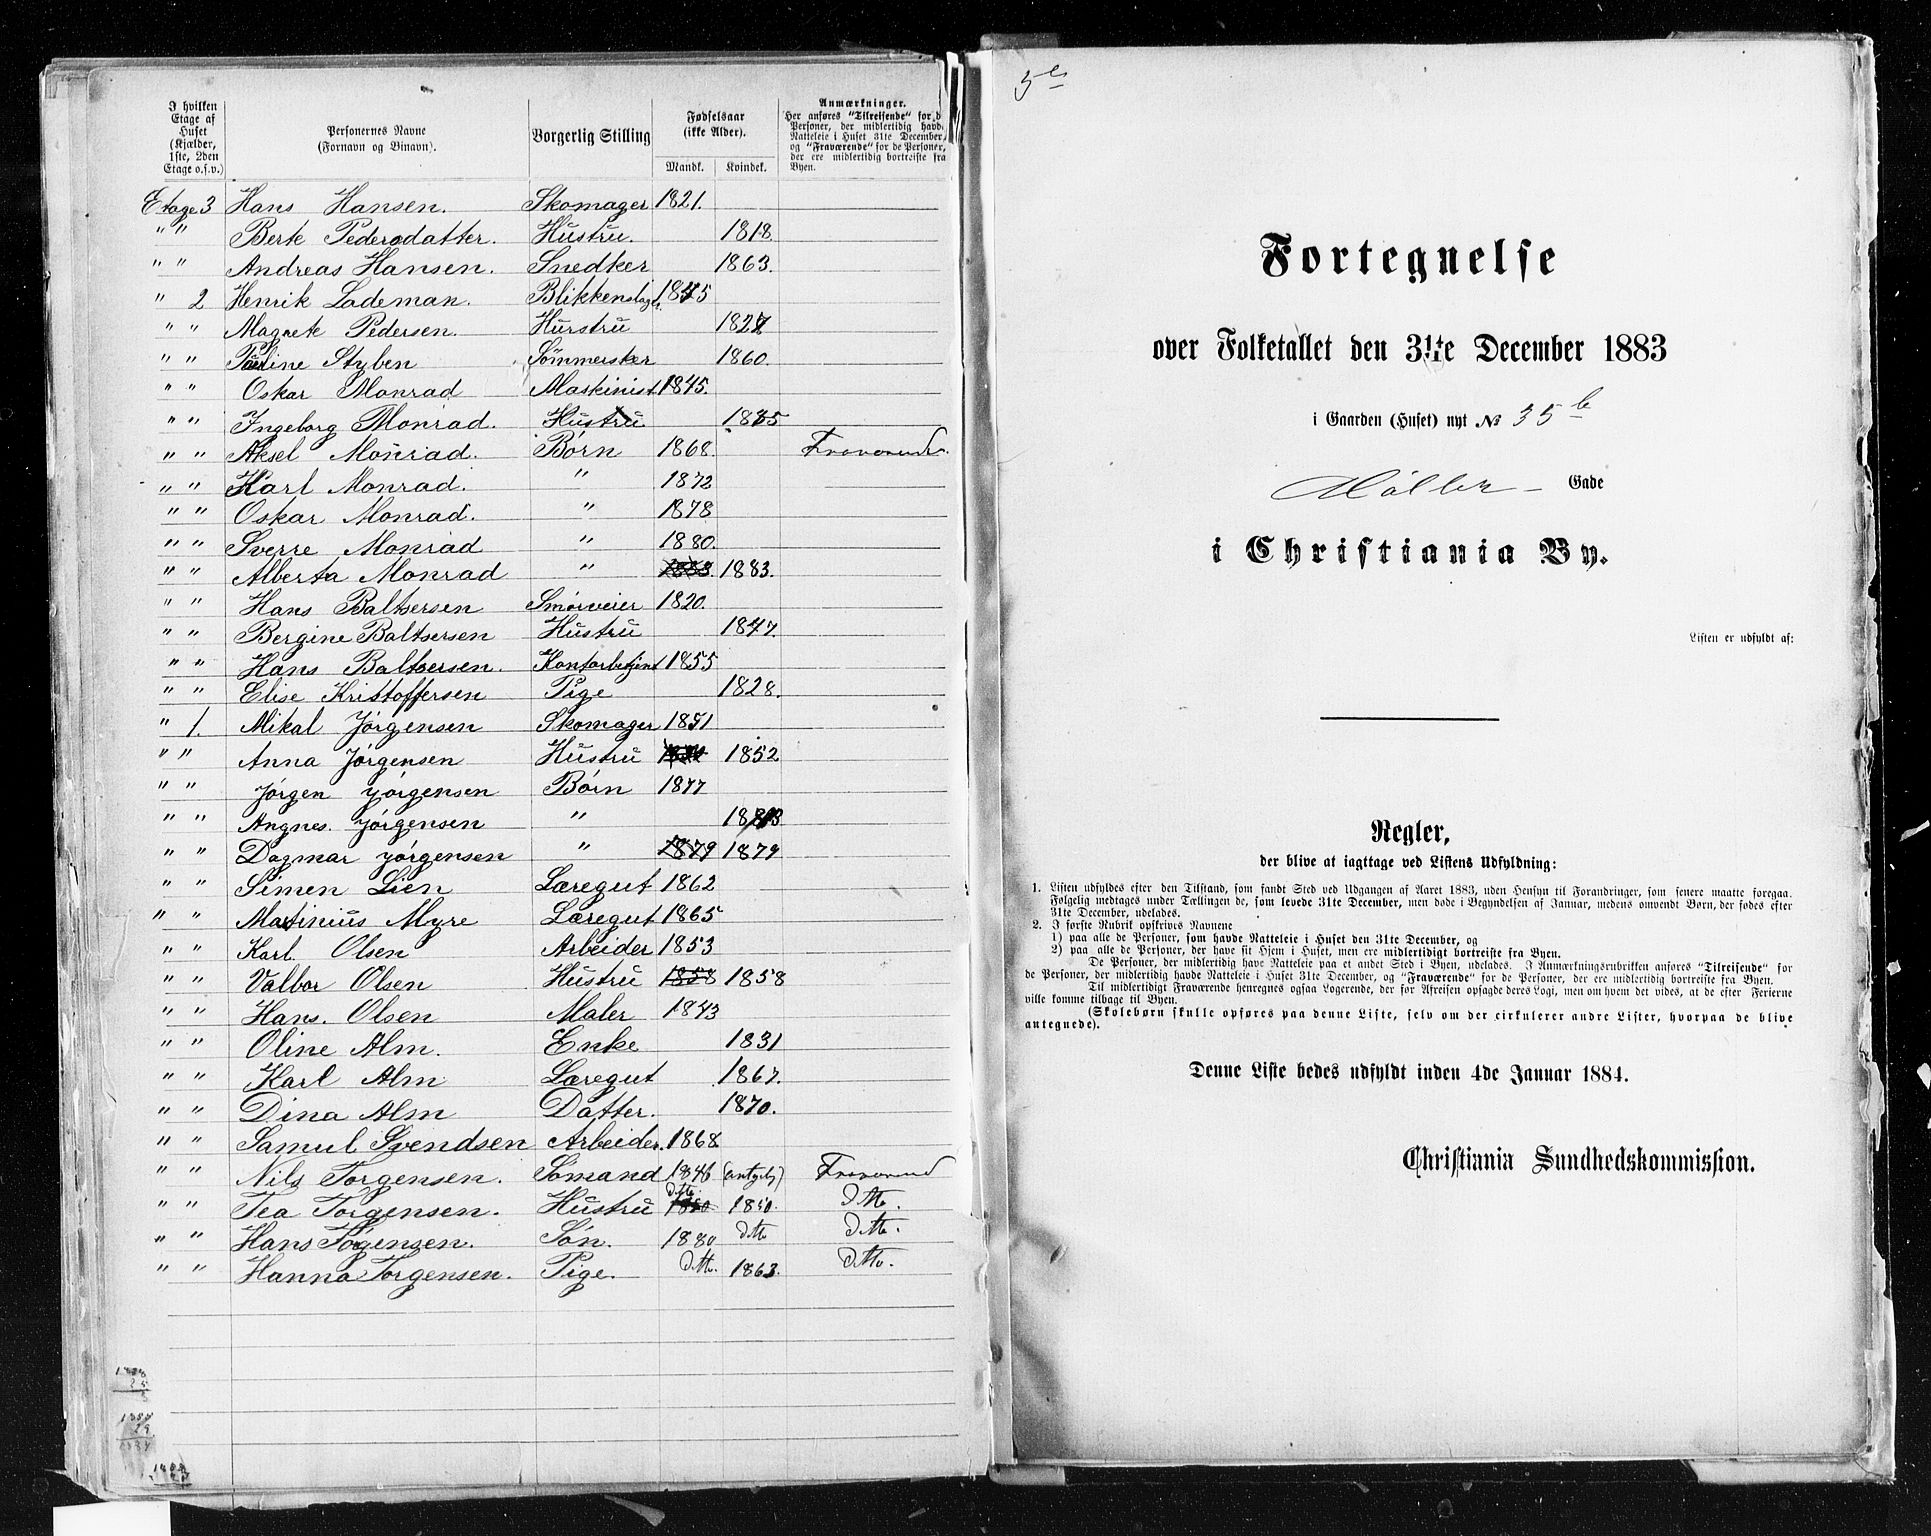 I hvilken Etage af Huset (Kjælder, 1ste, 2den Etage o.s.v.)
Personernes Navne (Fornavn og Binavn).
Borgerlig Stilling
Fødselsaar (ikke Alder).
Mandk.
Kvindek.
Anmærkninger.
Her anføres "Tilreisende" for de
Personer, der midlertidig havde
Natteleie i Huset 31te December,
og "Fraværende" for de Personer,
der ere midlertidig bortreiste fra
Byen.
Etage 3 Hans Hansen. Skomager 1821.
" " Berte Pedersdatter. Hustru. 1818.
" " Andreas Hansen. Snedker 1863.
" 2 Henrik Lademan. Blikkenslager
" " Magrete Pedersen. Hurstru 1827
" " Styben Sømmersker 1860.
" " Oskar Monrad Maskinist 1845.
" " Ingeborg Monrad. Hustru
" " Aksel Monrad. Børn 1868.
" " Karl Monrad. " 1872
" " Oskar Monrad. " 1878
" " Sverre Monrad " 1880.
" " Alberta Monrad " 1883. 1883.
" " Hans Baltsersen Smørveier 1820.
" " Bergine Baltsersen Hustru 1847.
" " Hans Baltsersen. Kontorbetjent 1855
" " Elise Kristoffersen Pige 1828.
" 1. Mikal Jørgensen Skomager 1851
" " Anna Jørgensen Hustru 1852
" " Jørgen Jørgensen Børn 1877
" " Angnes. Jørgensen "
" " Dagmar Jørgensen " 1879 1879
" " Simen Lien Læregut 1862
" " Martinius Myre Læregut 1865
" " Karl. Olsen Arbeider 1853
" " Valbor Olsen Hustru 1858 1858
" " Hans. Olsen Maler 1843
" " Oline Alm. Enke 1831
" " Karl Alm Læregut 1867.
" " Dina Alm Datter. 1870.
" " Samul Svendsen Arbeider. 1868
" " Nils Torgensen. Sømand 1846 Fraværend
" " Tea Torgensen. Hustru 1850 1850. dtto.
" " Hans Torgensen. Søn. 1880 dtto dtto.
" " Hanna Torgensen. Pige. dtto. 1863. dtto.
Fortegnelse
over Folketallet den 31te December 1883
i Gaarden (Huset) nyt No 35 b
Møller - Gade
i Christiania By.
Listen er udfyldt af:
Regler,
der blive at iagttage ved Listens Udfyldning:
1. Listen udfyldes efter den Tilstand, som fandt Sted ved Udgangen af Aaret 1883, uden Hensyn til Forandringer, som senere maatte foregaa.
Følgelig medtages under Tællingen de, som levede 31te December, men døde i Begyndelsen af Januar, medens omvendt Børn, der fødes efter
31te December, udelades.
2. I første Rubrik opskrives Navnene
1) paa alle de Personer, som havde Natteleie i Huset den 31te December, og
2) paa alle de Personer, der have sit Hjem i Huset, men ere midlertidigt bortreiste fra Byen.
De Personer, der midlertidig have Natteleie paa et andet Sted i Byen, udelades. I Anmærkningsrubrikken anføres "Tilreisende" for
de Personer, der midlertidig havde Natteleie i Huset 31te December, og "Fraværende" for de Personer, der ere midlertidig bortreiste fra Byen.
Til midlertidigt Fraværende henregnes ogsaa Logerende, der før Afreisen opsagde deres Logi, men om hvem det vides, at de efter Ferierne
ville komme tilbage til Byen.
(Skolebørn skulle opføres paa denne Liste, selv om der cirkulerer andre Lister, hvorpaa de blive
antegnede).
Denne Liste bedes udfyldt inden 4de Januar 1884.
Christiania Sundhedskommission.